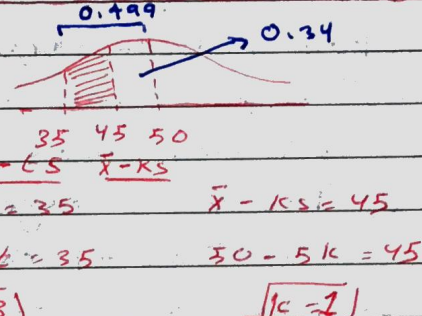 0.499
0.34
35 45 50
x̄ - KS
= 35 x̄ - KS = 45
= 35 50 - 5K = 45
K = 1